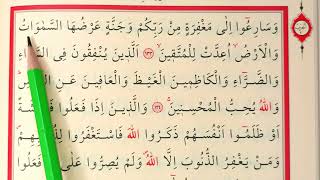 وَسَارِعُوا اِلٰى مَغْفِرَةٍ مِنْ رَبِّكُمْ وَجَنَّةٍ عَرْضُهَا السَّمٰوَاتُ
وَالْاَرْضُ اُعِدَّتْ لِلْمُتَّقٖينَ ﴿١٣٣﴾ اَلَّذٖينَ يُنْفِقُونَ فِى السَّرَّٓاءِ
وَالضَّرَّٓاءِ وَالْكَاظِمٖينَ الْغَيْظَ وَالْعَافٖينَ عَنِ
وَاللّٰهُ يُحِبُّ الْمُحْسِنٖينَ ﴿١٣٤﴾ وَالَّذٖينَ اِذَا فَعَلُوا فَاحِشَةً
اَوْ ظَلَمُٓوا اَنْفُسَهُمْ ذَكَرُوا اللّٰهَ فَاسْتَغْفَرُوا
وَمَنْ يَغْفِرُ الذُّنُوبَ اِلَّا اللّٰهُ وَلَمْ يُصِرُّوا عَلٰى مَا فَعَلُوا